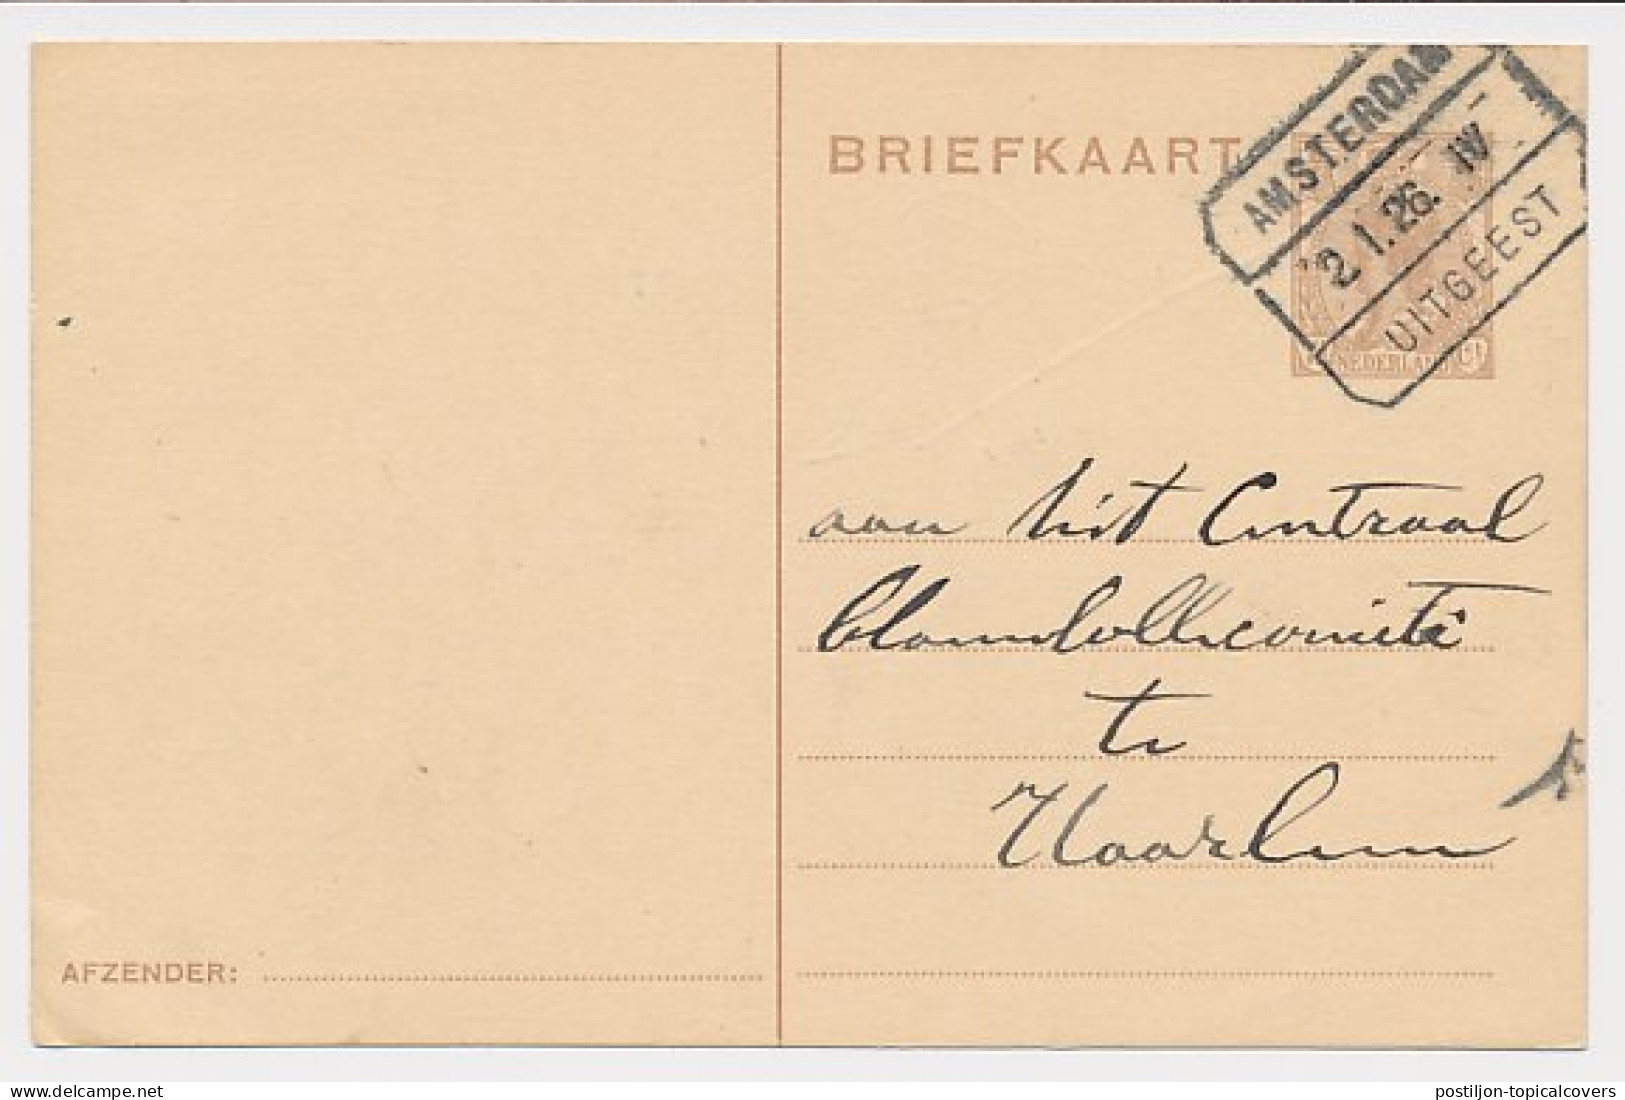 BRIEFKAART
AMSTERDAM
2 1.26. IV
UITGEEST
NEDERLAND
aan het Centraal
bloembollencomité
te
Haarlem
AFZENDER:
© the-philatelist-shop.delcampe.net
postiljon-topicalcovers